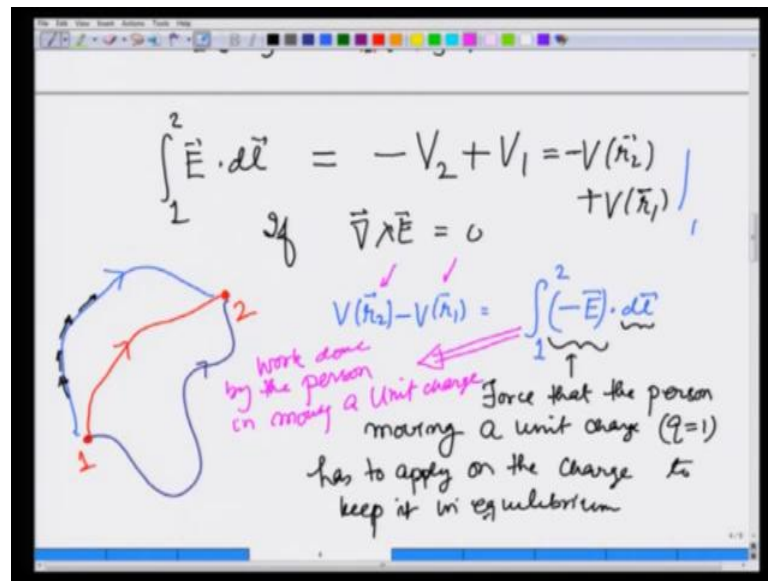 File Edit View Insert Actions Tools Help
∫₁² E⃗ · dl⃗ = - V₂ + V₁ = -V(r⃗₂)
+V(r⃗₁)
If ∇⃗ × E⃗ = 0
V(r⃗₂) - V(r⃗₁) = ∫₁² (-E⃗) · dl⃗
2
1
Work done
by the person
in moving a Unit charge
Force that the person
moving a unit charge (q=1)
has to apply on the charge to
keep it in equilibrium